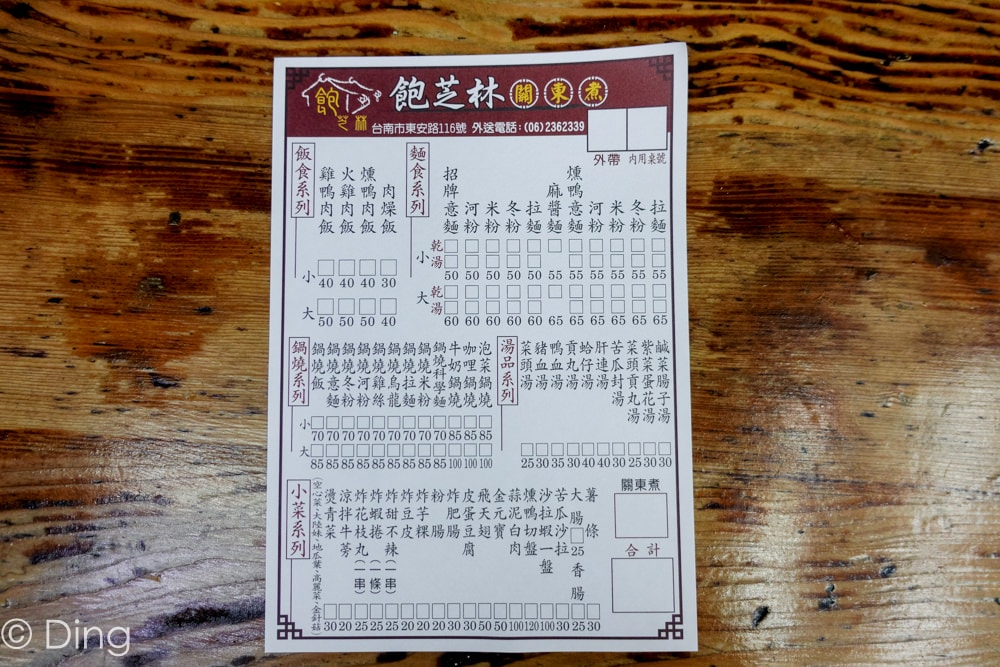 飽芝林
飽芝林關東煮
台南市東安路116號 外送電話:(06)2362339
外帶 內用桌號
飯食系列
雞鴨肉飯
火雞肉飯
燻鴨肉飯
肉燥飯
小 40 40 40 30
大 50 50 50 40
麵食系列
招牌意麵
河粉
米粉
冬粉
拉麵
麻醬麵
燻鴨意麵
河粉
米粉
冬粉
拉麵
小 乾湯
50 50 50 50 50 55 55 55 55 55 55
大 乾湯
60 60 60 60 60 65 65 65 65 65 65
鍋燒系列
鍋燒飯
鍋燒意麵
鍋燒冬粉
鍋燒河粉
鍋燒雞絲
鍋燒烏龍
鍋燒拉麵
鍋燒米粉
鍋燒科學麵
牛奶鍋燒
咖哩鍋燒
泡菜鍋燒
小 70 70 70 70 70 70 70 70 70 85 85 85
大 85 85 85 85 85 85 85 85 85 100 100 100
湯品系列
菜頭湯
豬血湯
鴨血湯
貢丸湯
蛤仔湯
肝連湯
苦瓜封湯
菜頭貢丸湯
紫菜蛋花湯
鹹菜腸子湯
25 30 35 30 40 40 30 25 30 30
小菜系列
空心菜、大陸妹、地瓜葉、高麗菜、金針菇)
燙青菜
涼拌牛蒡
炸花枝丸(一串)
炸蝦捲(一條)
炸甜不辣(一串)
炸豆皮
炸芋粿
粉腸
炸肥腸
皮蛋豆腐
飛天翅
金元寶
蒜泥白肉
燻鴨切盤
沙拉蝦一盤
苦瓜沙拉
大腸 25 香腸
薯條
30 20 25 25 25 20 20 20 30 30 50 50 100 120 100 30 25 30
關東煮
合計
© Ding